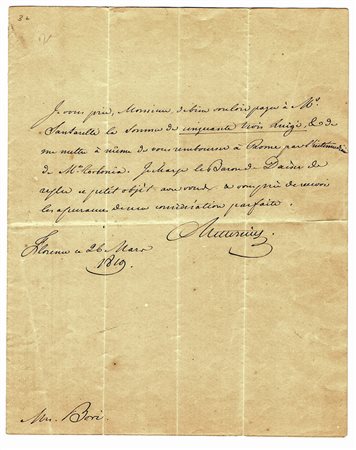 Je vous prie, Monsieur, de bien vouloir payer à Mr.
Santarelli la somme de cinquante trois Luigi, & de
me mettre à même de vous rembourser à Rome par
de Mr. Torlonia. Je charge le Baron de Daiser de
regler ce petit objet avec vous & vous prie de recevoir
les assurances de ma considération parfaite.
Metternich
Florence ce 26 Mars
1819.
Mr. Bori